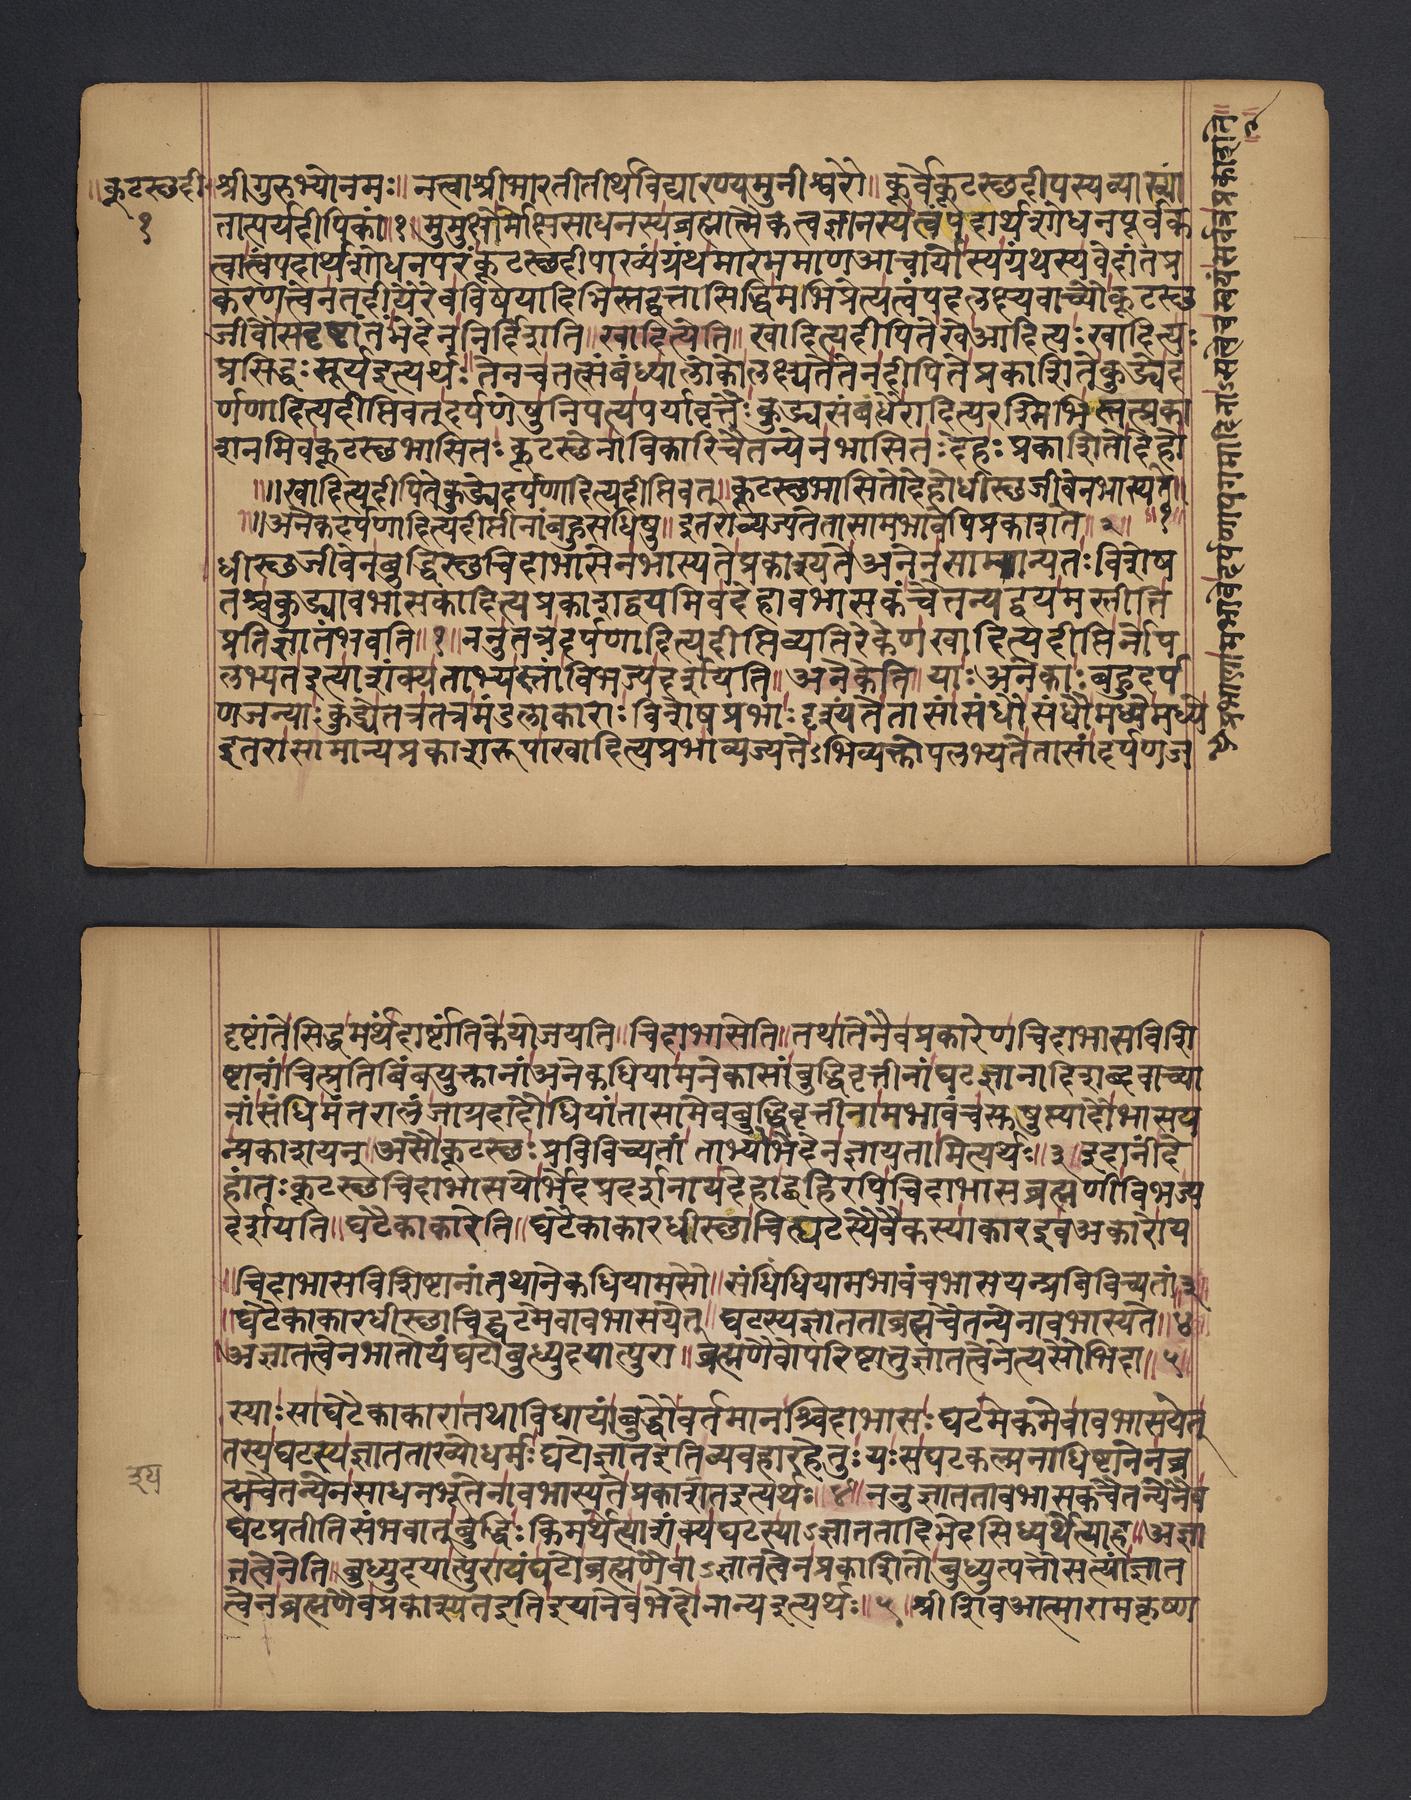 ॥कूटस्छदी॰
१
श्रीगुरुभ्योनमः॥ नत्वाश्रीभारतीतीर्थविद्यारण्यमुनीश्वरौ॥ कूर्वेकूटस्छदीपस्यव्याख्यां
तात्पर्यदीपिकां॥१॥ मुमुक्षोर्मोक्षसाधनस्यब्रह्मात्मैकत्वज्ञानस्यत्वंपदार्थशोधनपूर्वक
त्वात्त्वंपदार्थशोधनपरंकूटस्छदीपाख्यंग्रंथमारभमाणआचार्योस्यग्रंथस्यवेदांतप्र
करणत्वेनतदीयैरेवविषयादिभिस्तद्वत्तासिद्धिमभिप्रेत्यत्वंपदलक्ष्यवाच्यौकूटस्छ
जीवौसदृष्टातंभेदेननिर्दिशति॥ खादित्येति॥ खादित्यदीपितेखेआदित्यः खादित्यः
प्रसिद्धः सूर्यइत्यर्थः तेनचतत्संबंध्यालोकोलक्ष्यतेतेनदीपितेप्रकाशितेकुड्येद
र्पणादित्यदीप्तिवत्दर्पणेषुनिपत्यपर्यावृत्तैः कुड्यसंबंधैरादित्यरश्मिभिस्तत्प्रका
शनमिवकूटस्छभासितः कूटस्छेनाविकारिचैतन्येनभासितः देहः प्रकाशितोदेहो
॥॥खादित्यदीपितेकुड्येदर्पणादित्यदीप्तिवत्॥ कूटस्छभासितोदेहोधीस्छजीवेनभास्यते॥१॥
॥॥अनेकदर्पणादित्यदीप्तीनांबहुसंधिषु॥ इतराव्यज्यतेतासामभावेपिप्रकाशते॥२॥
धीस्छजीवेनबुद्धिस्छचिदाभासेनभास्यतेप्रकाश्यतेअनेनसामान्यतः विशेष
तश्चकुड्यावभासकादित्यप्रकाशद्वयमिवदेहावभासकंचैतन्यद्वयमस्तीति
प्रतिज्ञातंभवति॥१॥ ननुतत्रदर्पणादित्यदीप्तिव्यतिरेकेणखादित्यदीप्तिर्नोप
लभ्यतइत्याशंक्यताभ्यस्तांविभज्यदर्शयति॥ अनेकेति॥ याः अनेकाः बहुदर्प
णजन्याः कुड्येतत्रतत्रमंडलाकाराः विशेषप्रभाः दृश्यंतेतासांसंधौसंधौमध्येमध्ये
इतरासामान्यप्रकाशरूपाखादित्यप्रभाव्यज्यतेऽभिव्यक्तोपलभ्यतेतासांदर्पणज
दृष्टांतेसिद्धमर्थंदार्ष्टांतिकेयोजयति॥ चिदाभासेति॥ तथातेनैवप्रकारेणचिदाभासविशि
ष्टानांचित्प्रतिबिंबयुक्तानांअनेकधियामनेकासांबुद्धिवृत्तीनांघटज्ञानादिशब्दवाच्या
नांसंधिमंतरालंजाग्रदादौधियांतासामेवबुद्धिवृत्तीनामभावंचसुषुप्त्यादौभासय
न्प्रकाशयन् असौकूटस्छः प्रविविच्यतां ताभ्योभेदेनज्ञायतामित्यर्थः॥३॥इदानींदे
हांतः कूटस्छचिदाभासयोर्भेदप्रदर्शनायदेहाद्बहिरपिचिदाभासब्रह्मणीविभज्य
दर्शयति॥ घटैकाकारेति॥ घटैकाकारधीस्छाचित्घटस्यैवैकस्याकारइवआकारोय
॥चिदाभासविशिष्टानांतथानेकधियामसौ॥ संधिंधियामभावंचभासयन्प्रविविच्यतां॥३॥
॥घटैकाकारधीस्छाचिद्घटमेवावभासयेत्॥ घटस्यज्ञातताब्रह्मचैतन्येनावभास्यते॥४॥
॥अज्ञातत्वेनभातोयंघटोबुध्युदयात्पुरा॥ ब्रह्मणैवोपरिष्टात्तुज्ञातत्वेनेत्यसौभिदा॥५॥
स्याः साघटैकाकारातथाविधायांबुद्धौवर्तमानश्चिदाभासः घटमेकमेवावभासयेत्
तस्यघटस्यज्ञातताख्योधर्मः घटोज्ञातइतिव्यवहारहेतुः यः सघटकल्पनाधिष्टानेनब्र
ह्मचैतन्येनसाधनभूतेनावभास्यतेप्रकाशतइत्यर्थः॥४॥ ननुज्ञाततावभासकचैतन्येनैव
घटप्रतीतिसंभवात्बुद्धिः किमर्थेत्याशंक्यघटस्याऽज्ञाततादिभेदसिध्यर्थेत्याह॥ अज्ञा
तत्वेनेति॥ बुध्युदयात्पुरायंघटोब्रह्मणैवाऽज्ञातत्वेनप्रकाशितोबुध्युत्पत्तौसत्यांज्ञात
त्वेनब्रह्मणैवप्रकाश्यतइतिइयानेवभेदोनान्यइत्यर्थः॥५॥ श्रीशिवआत्मारामकृष्ण